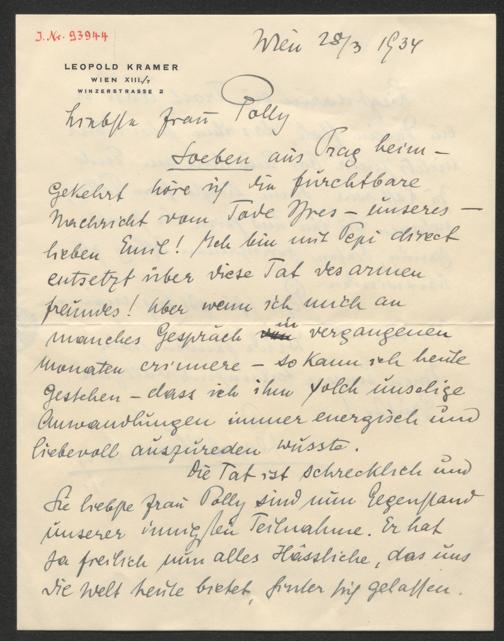 J. Nr. 93944
Wien 28/3 1934
LEOPOLD KRAMER
WIEN XIII/7
WINZERSTRASSE 2
Liebste Frau Polly
Soeben aus Prag heim-
gekehrt höre ich die furchtbare
Nachricht vom Tode Ihres – unseres –
lieben Emil! Ich bin mit Pepi direct
entsetzt über diese Tat des armen
Freundes! Aber wenn ich mich an
manches Gespräch in vergangenen
Monaten erinnere – so kann ich heute
gestehen – dass ich ihm solch unselige
Anwandlungen immer energisch und
liebevoll auszureden wusste.
Die Tat ist schrecklich und
Sie liebste Frau Polly sind nun Gegenstand
unserer innigsten Teilnahme. Er hat
ja freilich nun alles Hässliche, das uns
die Welt heute bietet, hinter sich gelassen.